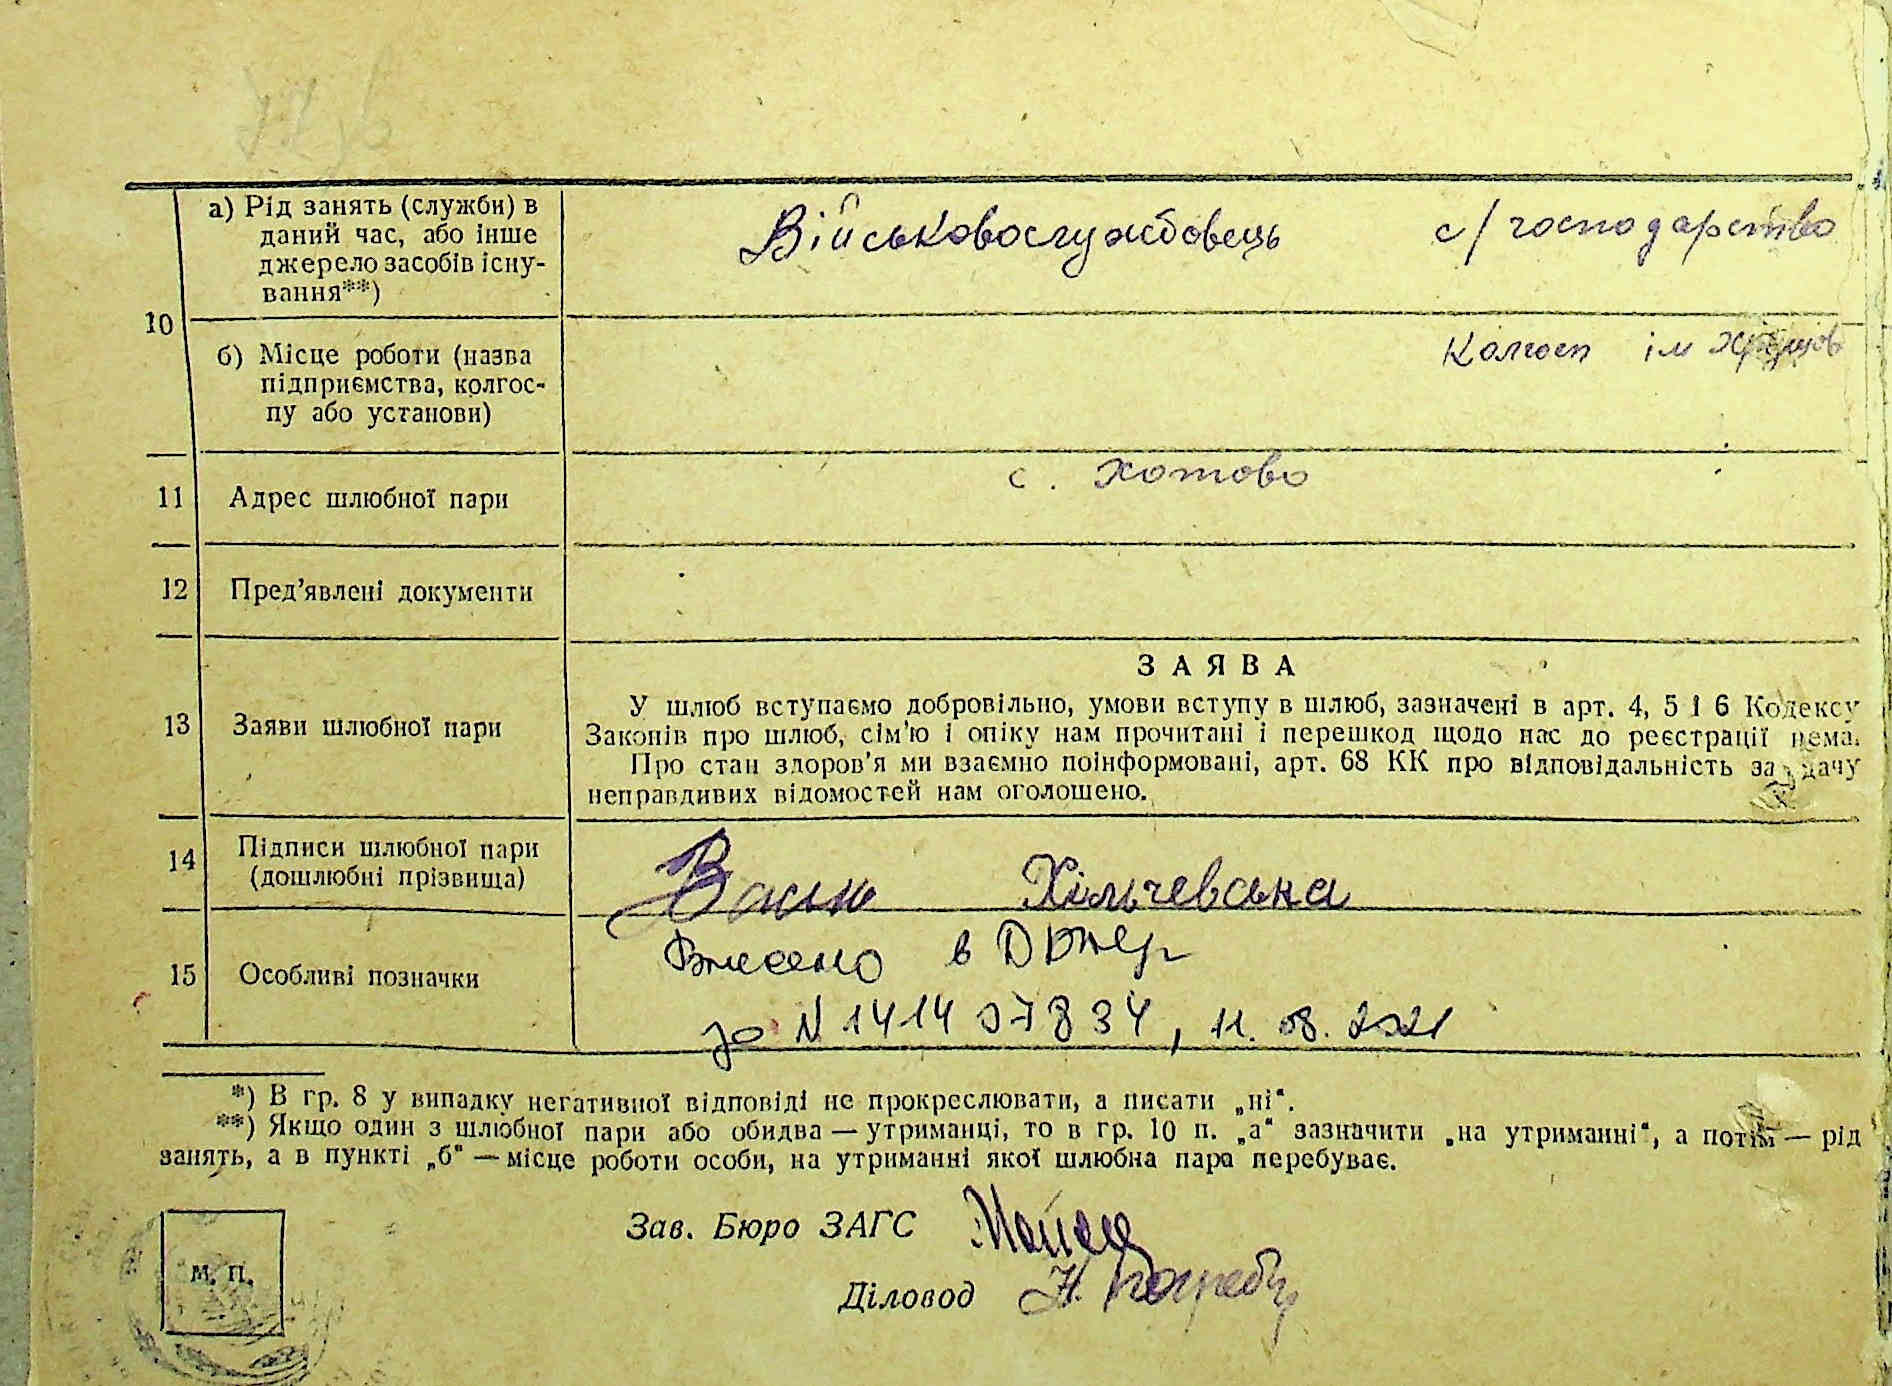 а) Рід занять (служби) в
даний час, або інше
джерело засобів існу-
вання**)
Військовослужбовець с/господарство
10
б) Місце роботи (назва
підприємства, колгос-
пу або установи)
Колгосп ім
11 Адрес шлюбної пари с. Хотово
12 Пред'явлені документи
13 Заяви шлюбної пари
ЗАЯВА
У шлюб вступаємо добровільно, умови вступу в шлюб, зазначені в арт. 4, 5 і 6 Кодексу
Законів про шлюб, сім'ю і опіку нам прочитані і перешкод щодо нас до реєстрації нема.
Про стан здоров'я ми взаємно поінформовані, арт. 68 КК про відповідальність за дачу
неправдивих відомостей нам оголошено.
14 Підписи шлюбної пари
(дошлюбні прізвища)
Хільчевська
15 Особливі позначки
Внесено в
за N 141407834, 11.08.2021
*) В гр. 8 у випадку негативної відповіді не прокреслювати, а писати „ні“.
**) Якщо один з шлюбної пари або обидва — утриманці, то в гр. 10 п. „а“ зазначити „на утриманні“, а потім — рід
занять, а в пункті „б“ — місце роботи особи, на утриманні якої шлюбна пара перебуває.
Зав. Бюро ЗАГС
Діловод Н.
м. п.